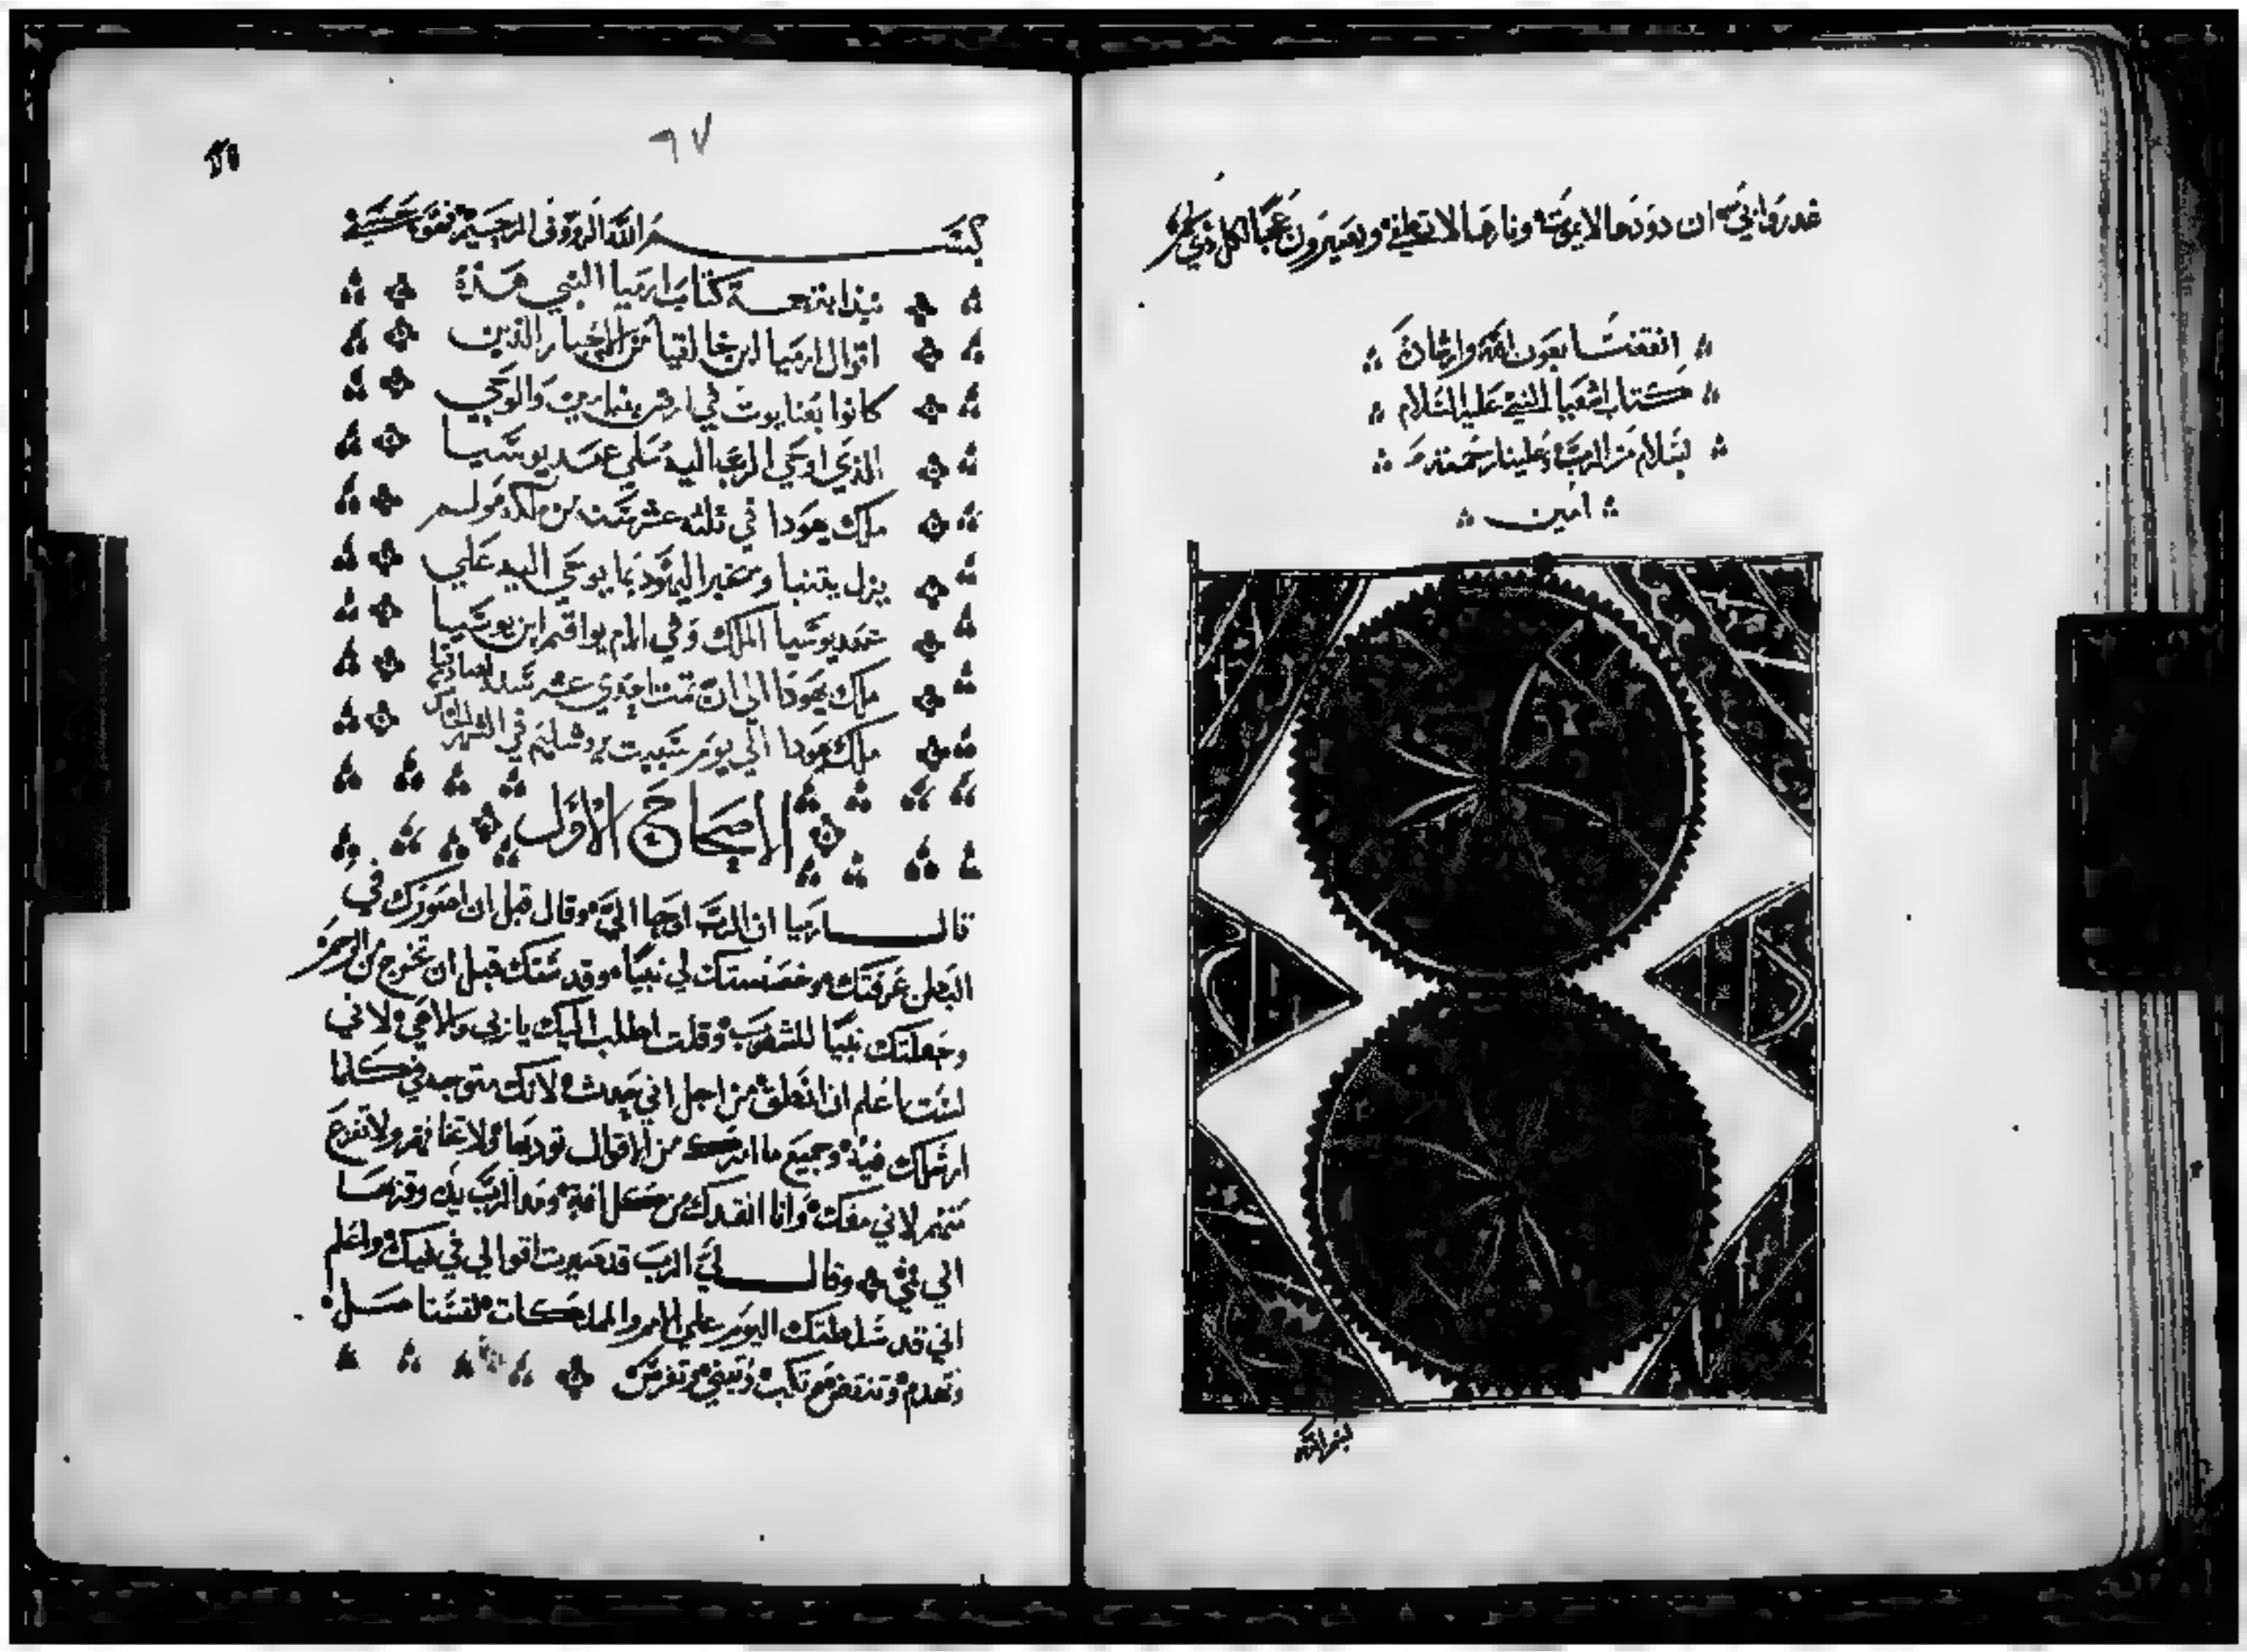 غدروا بي ان دودها لا يموت ونارها لا تطفي ويصيرون عجبًا لكل ذي
انقضت بعون الله وارشاد
كتاب اشعيا النبي عليه السلام
بسلام من الرب وعلينا رحمته
امين
بسم الله
٩٧
بسم الله الرووف الرحيم
نبتدا كتاب ارميا النبي هذه
اقوال ارميا ابن خالقيا من الاحبار الذين
كانوا بعنابوت في ارض بنيامين والوحي
الذي اوحي الرب اليه علي عهد يوسيا
ملك يهودا في ثلثه عشر سنه من ملكه ولم
يزل يتنبا ويخبر اليهود بما يوحي اليه علي
عهد يوسيا الملك وفي ايام يواقيم ابن يوسيا
ملك يهودا الي ان تمت احدي عشر سنه
ملك يهودا الي يوم سبيت يروشليم في الشهر
الاصحاح الاول
قال ارميا ان الرب اوحا الي وقال قبل ان اصورك في
البطن عرفتك وخصصتك لي نبيًا وقدستك قبل ان تخرج من الرحم
وجعلتك نبيًا للشعوب وقلت اطلب اليك يا ربي والاهي لاني
لست اعلم ان انطق من اجل اني حدث لانك تتوجه في كلما
ارسلك فيه وجميع ما امرك من الاقوال تودیها ولا تخافهم ولا تفزع
منهم لاني معك وانا انقدك من كل افة ومد الرب يده وقربها
الي فمي وقال لي الرب قد صيرت اقوالي في فيك واعلم
اني قد سلطتك اليوم علي الامم والمملكات لتستاصل
وتهدم وتنقض وتكب وتبني وتغرس